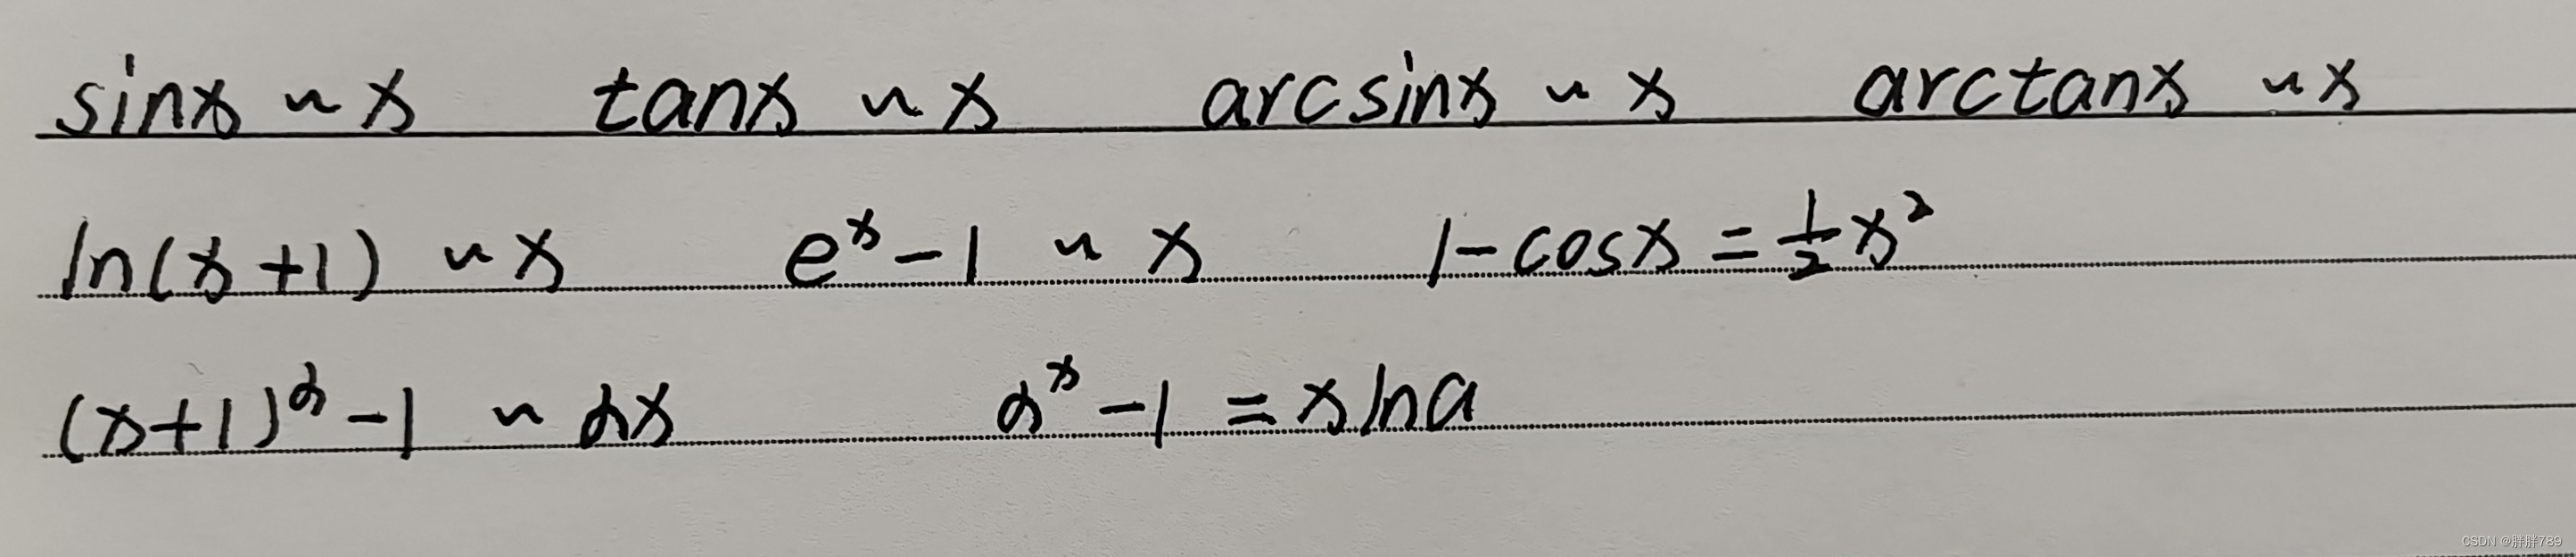 sinx ~ x tanx ~ x arcsinx ~ x arctanx ~ x
ln(x+1) ~ x eˣ-1 ~ x 1-cosx = ½x²
(x+1)ᵅ-1 ~ αx αˣ-1 = xlna
CSDN @胖胖789